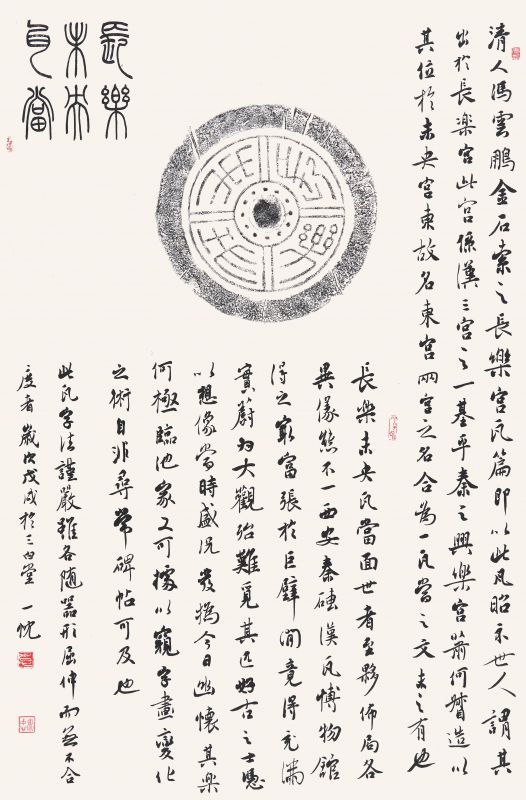 長樂
未央
瓦當
清人馮雲鵬金石索之長樂宮瓦篇即以此瓦昭示世人謂其
出於長楽宮此宮係漢三宮之一基乎秦之興樂宮蕭何督造以
其位於未央宮東故名東宮兩字之名合為一瓦當之文未之有也
長樂未央瓦當面世者至夥佈局各
異像態不一西安秦磚漢瓦博物館
得之最富張於巨壁間竟得充滿
實蔚為大觀殆難覓其匹好古之士憑
以想像當時盛況發為今日幽懷其樂
何極臨池家又可據以窺字畫變化
之術自非尋常碑帖可及也
此瓦字法謹嚴雖各隨器形屈伸而無不合
度者歲次戊戌於三白堂一忱